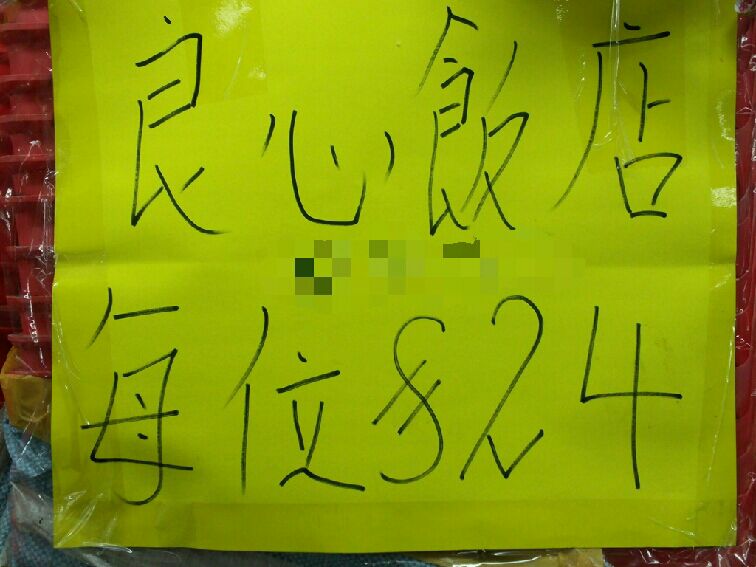 良心飯店
每位$24